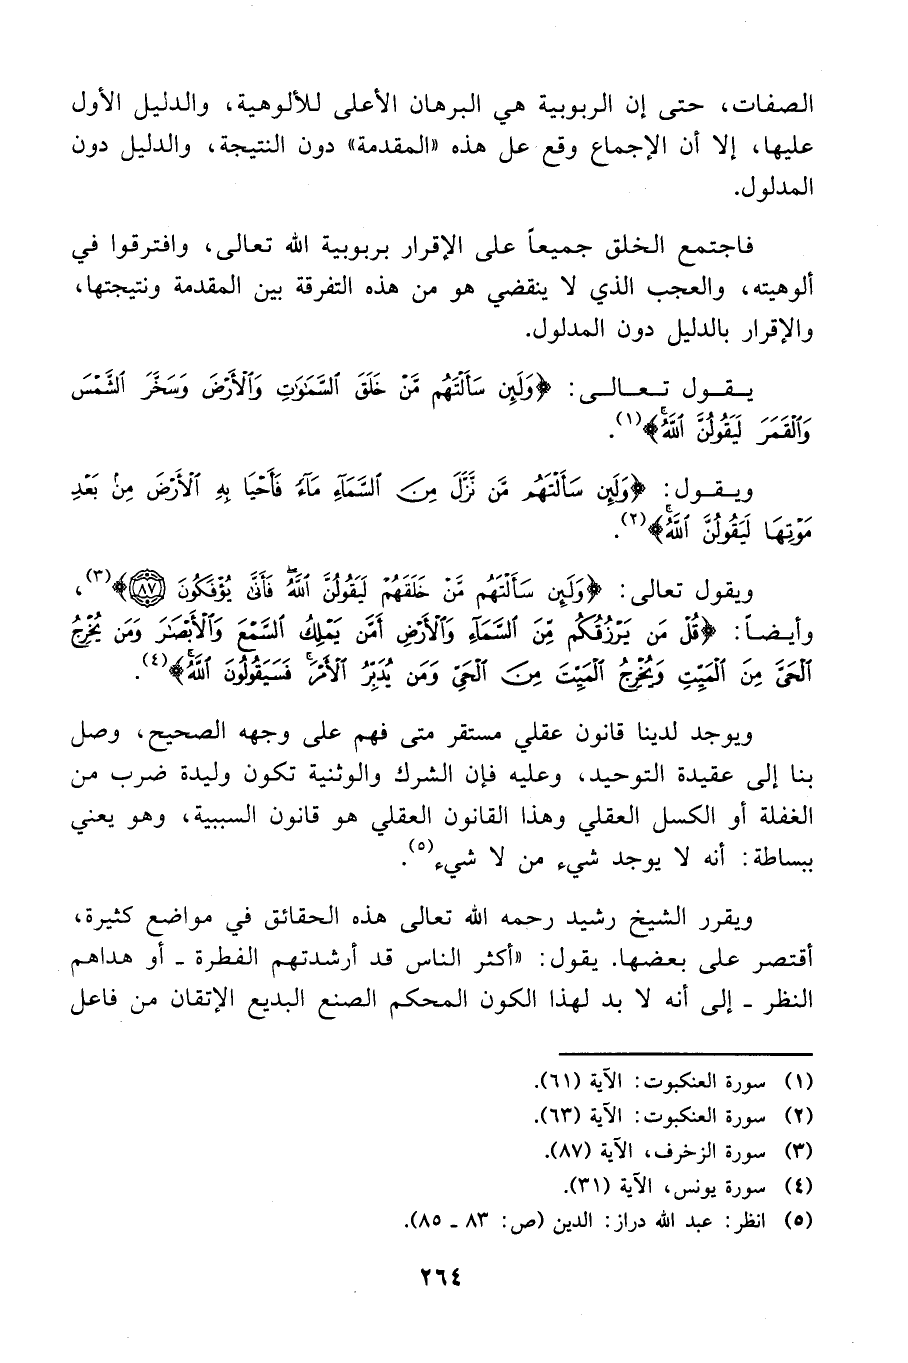 الصفات، حتى إن الربوبية هي البرهان الأعلى للألوهية، والدليل الأول
عليها، إلا أن الإجماع وقع عل هذه «المقدمة» دون النتيجة، والدليل دون
المدلول.
فاجتمع الخلق جميعاً على الإقرار بربوبية الله تعالى، وافترقوا في
ألوهيته، والعجب الذي لا ينقضي هو من هذه التفرقة بين المقدمة ونتيجتها،
والإقرار بالدليل دون المدلول.
يـقـول تـعـالـى: ﴿وَلَئِن سَأَلْتَهُم مَّنْ خَلَقَ ٱلسَّمَٰوَٰتِ وَٱلْأَرْضَ وَسَخَّرَ ٱلشَّمْسَ
وَٱلْقَمَرَ لَيَقُولُنَّ ٱللَّهُ﴾(١).
ويـقـول: ﴿وَلَئِن سَأَلْتَهُم مَّن نَّزَّلَ مِنَ ٱلسَّمَآءِ مَآءً فَأَحْيَا بِهِ ٱلْأَرْضَ مِنۢ بَعْدِ
مَوْتِهَا لَيَقُولُنَّ ٱللَّهُ﴾(٢).
ويقول تعالى: ﴿وَلَئِن سَأَلْتَهُم مَّنْ خَلَقَهُمْ لَيَقُولُنَّ ٱللَّهُ فَأَنَّىٰ يُؤْفَكُونَ ٨٧﴾(٣)،
وأيضاً: ﴿قُلْ مَن يَرْزُقُكُم مِّنَ ٱلسَّمَآءِ وَٱلْأَرْضِ أَمَّن يَمْلِكُ ٱلسَّمْعَ وَٱلْأَبْصَٰرَ وَمَن يُخْرِجُ
ٱلْحَىَّ مِنَ ٱلْمَيِّتِ وَيُخْرِجُ ٱلْمَيِّتَ مِنَ ٱلْحَىِّ وَمَن يُدَبِّرُ ٱلْأَمْرَ فَسَيَقُولُونَ ٱللَّهُ﴾(٤).
ويوجد لدينا قانون عقلي مستقر متى فهم على وجهه الصحيح، وصل
بنا إلى عقيدة التوحيد، وعليه فإن الشرك والوثنية تكون وليدة ضرب من
الغفلة أو الكسل العقلي وهذا القانون العقلي هو قانون السببية، وهو يعني
ببساطة: أنه لا يوجد شيء من لا شيء(٥).
ويقرر الشيخ رشيد رحمه الله تعالى هذه الحقائق في مواضع كثيرة،
أقتصر على بعضها. يقول: «أكثر الناس قد أرشدتهم الفطرة ـ أو هداهم
النظر ـ إلى أنه لا بد لهذا الكون المحكم الصنع البديع الإتقان من فاعل
(١) سورة العنكبوت: الآية (٦١).
(٢) سورة العنكبوت: الآية (٦٣).
(٣) سورة الزخرف، الآية (٨٧).
(٤) سورة يونس، الآية (٣١).
(٥) انظر: عبد الله دراز: الدين (ص: ٨٣ ـ ٨٥).
٢٦٤